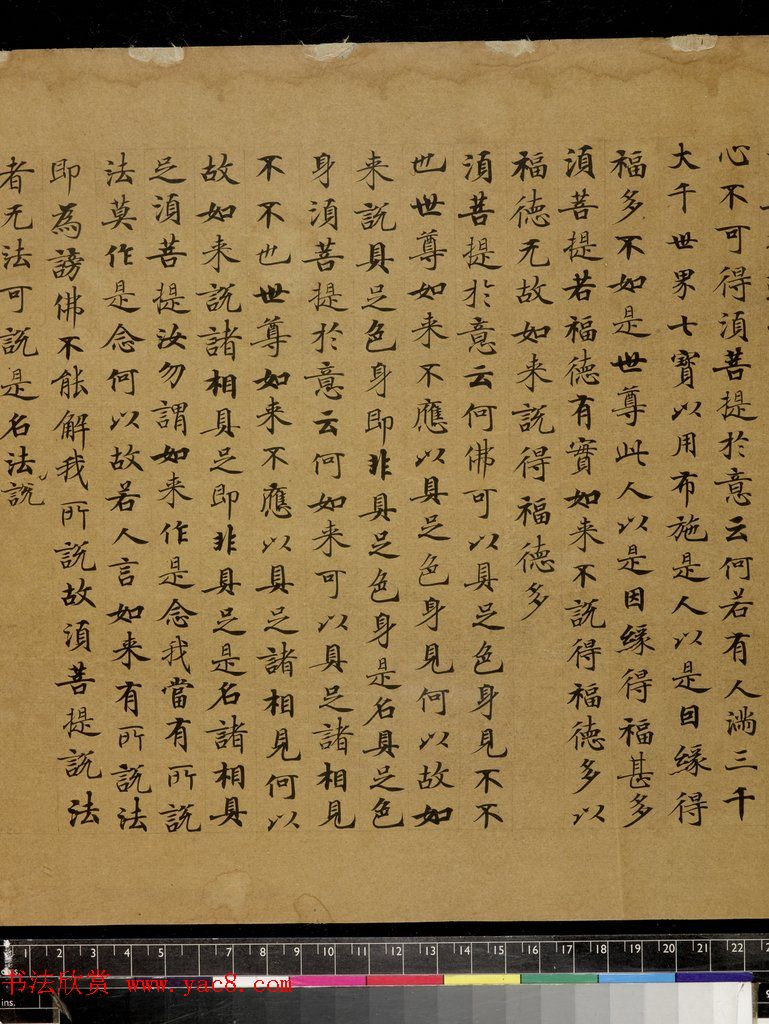 心不可得湏菩提於意云何若有人满三千
大千世界七寳以用布施是人以是因縁得
福多不如是世尊此人以是因縁得福甚多
湏菩提若福徳有實如来不説得福徳多以
福徳无故如来説得福徳多
湏菩提於意云何佛可以具足色身見不不
也世尊如来不應以具足色身見何以故如
来説具足色身即非具足色身是名具足色
身湏菩提於意云何如来可以具足諸相見
不不也世尊如来不應以具足諸相見何以
故如来説諸相具足即非具足是名諸相具
足湏菩提汝勿謂如来作是念我當有所説
法莫作是念何以故若人言如来有所説法
即為謗佛不能解我所説故湏菩提説法
者无法可説是名法説
1 2 3 4 5 7 8 9 10 11 12 13 14 15 16 17 18 19 20 21 22
cms.
ins.
书法欣赏 www.yac8.com